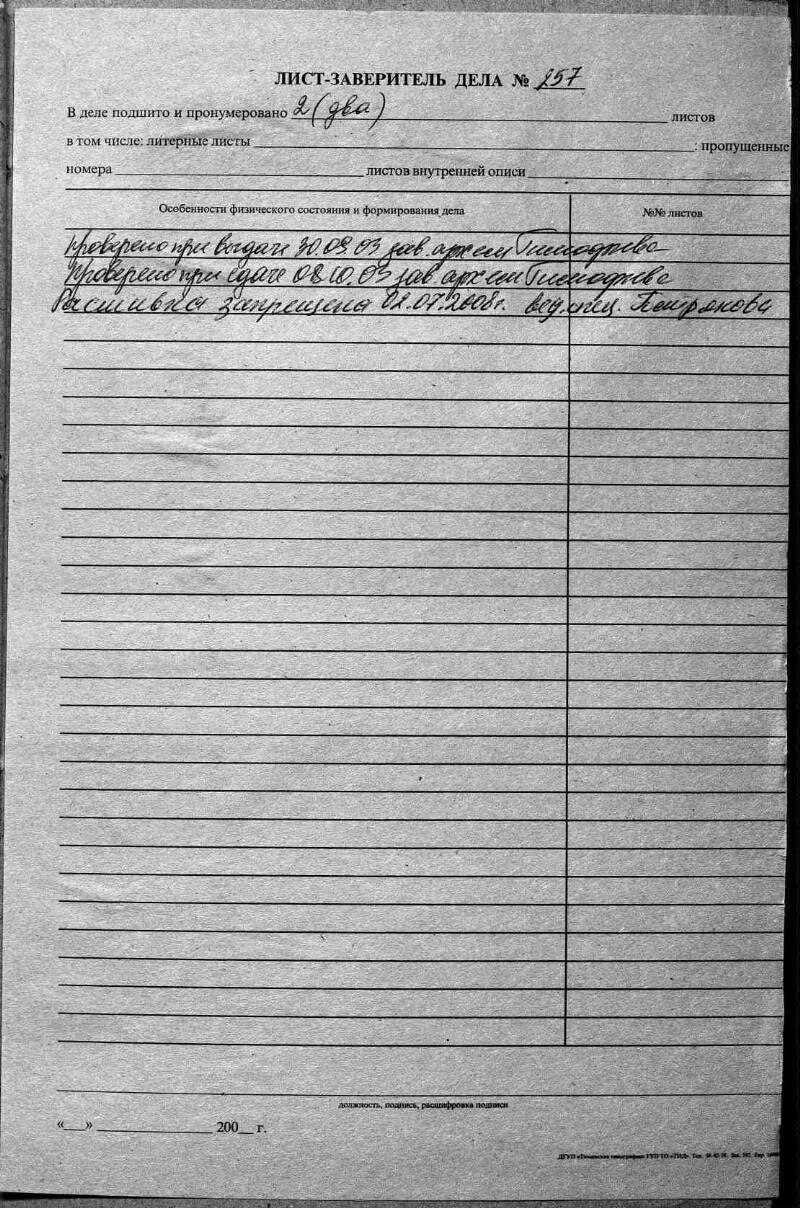 ЛИСТ-ЗАВЕРИТЕЛЬ ДЕЛА № 257
В деле подшито и пронумеровано 2 (два) листов
в том числе: литерные листы : пропущенные
номера листов внутренней описи
Особенности физического состояния и формирования дела №№ листов
Проверено при выдаче 30.09.03 зав. арх-ем Тимофеева
Проверено при сдаче 08.10.03 зав. арх-ем Тимофеева
Расшивка запрещена 02.07.2008г. вед.спец. Петрякова
должность, подпись, расшифровка подписи
«__» 200__ г.
ДГУП «Тюменская типография» ГУП ТО «ТИД».